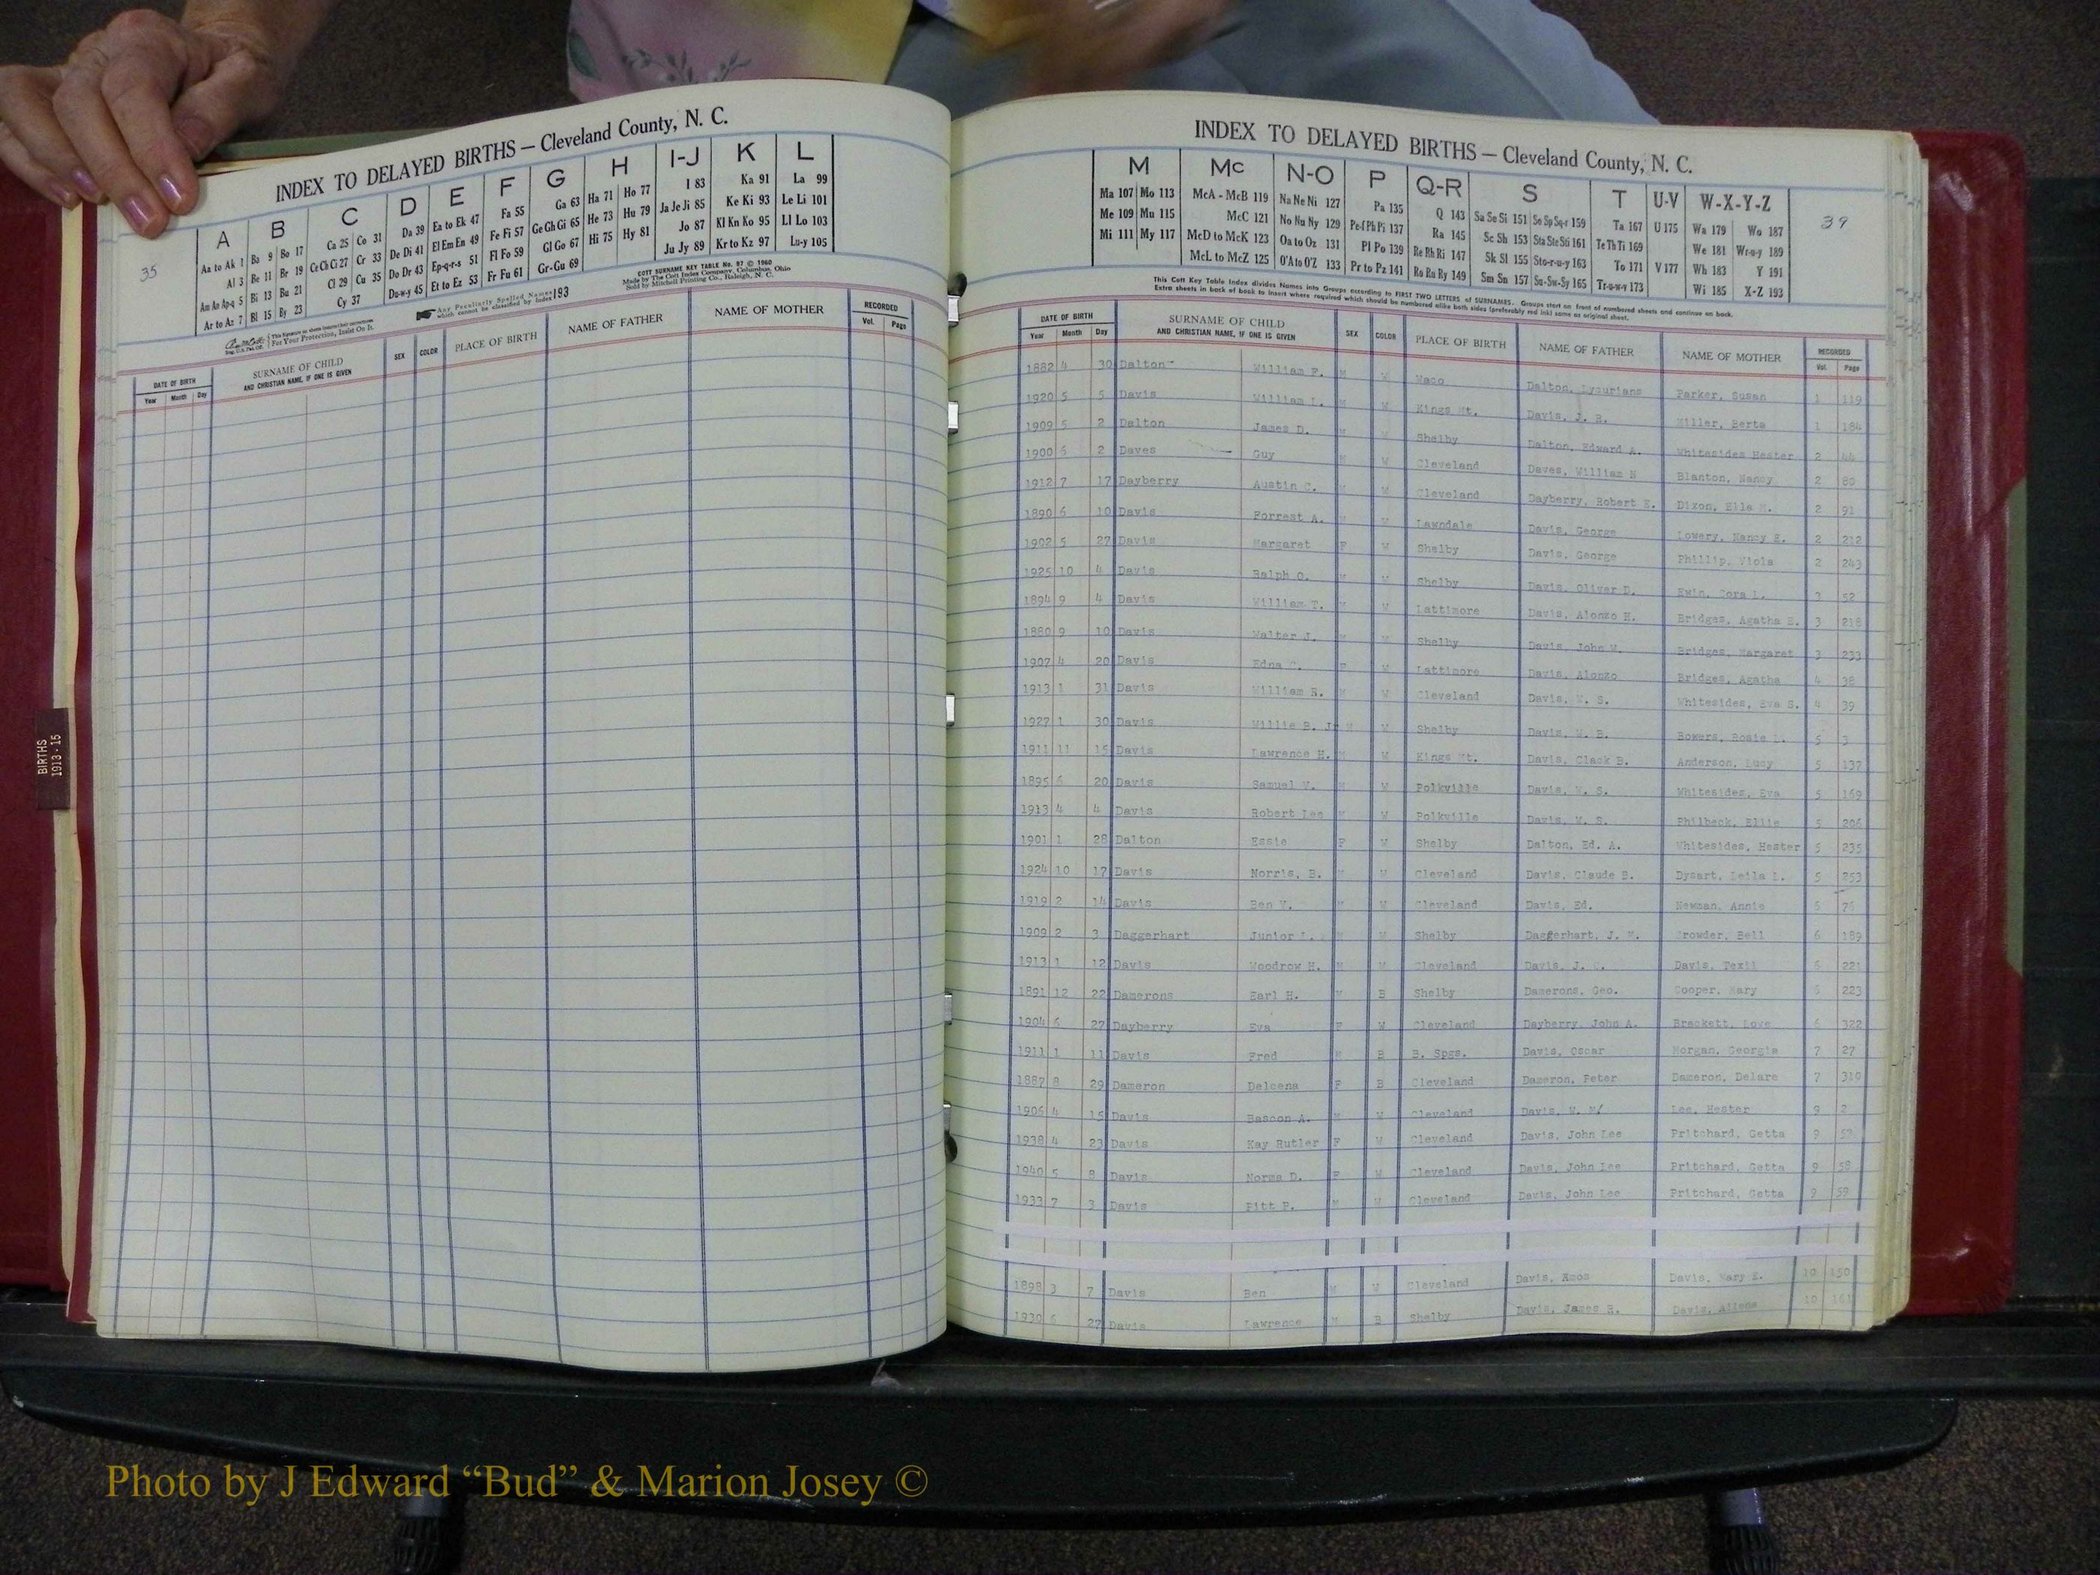 BIRTHS
1913-15
35
INDEX TO DELAYED BIRTHS — Cleveland County, N. C.
A B C D E F G H I-J K L
Aa to Ak 1 Ba 9 Bo 17 Ca 25 Co 31 Da 39 Ea to Ek 47 Fa 55 Ga 63 Ha 71 Ho 77 I 83 Ka 91 La 99
Al 3 Be 11 Br 19 Ce Ch Ci 27 Cr 33 De Di 41 El Em En 49 Fe Fi 57 Ge Gh Gi 65 He 73 Hu 79 Ja Je Ji 85 Ke Ki 93 Le Li 101
Am An Ap-q 5 Bi 13 Bu 21 Cl 29 Cu 35 Do Dr 43 Ep-q-r-s 51 Fl Fo 59 Gl Go 67 Hi 75 Hy 81 Jo 87 Kl Kn Ko 95 Ll Lo 103
Ar to Az 7 Bl 15 By 23 Cy 37 Du-w-y 45 Et to Ez 53 Fr Fu 61 Gr-Gu 69 Ju Jy 89 Kr to Kz 97 Lu-y 105
Any Peculiarly Spelled Names which cannot be classified by Index 193
COTT SURNAME KEY TABLE No. 97 © 1960
Made by The Cott Index Company, Columbus, Ohio
Sold by Mitchell Printing Co., Raleigh, N. C.
For Your Protection, Insist On It.
DATE OF BIRTH SURNAME OF CHILD SEX COLOR PLACE OF BIRTH NAME OF FATHER NAME OF MOTHER RECORDED
Year Month Day AND CHRISTIAN NAME, IF ONE IS GIVEN Vol. Page
INDEX TO DELAYED BIRTHS — Cleveland County, N. C.
39
M Mc N-O P Q-R S T U-V W-X-Y-Z
Ma 107 Mo 113 McA - McB 119 Na Ne Ni 127 Pa 135 Q 143 Sa Se Si 151 So Sp Sq-r 159 Ta 167 U 175 Wa 179 Wo 187
Me 109 Mu 115 McC 121 No Nu Ny 129 Pe-f Ph Pi 137 Ra 145 Sc Sh 153 Sta Ste Sti 161 Te Th Ti 169 We 181 Wr-u-y 189
Mi 111 My 117 McD to McK 123 Oa to Oz 131 Pl Po 139 Re Rh Ri 147 Sk Sl 155 Sto-r-u-y 163 To 171 V 177 Wh 183 Y 191
McL to McZ 125 O'A to O'Z 133 Pr to Pz 141 Ro Ru Ry 149 Sm Sn 157 Su-Sw-Sy 165 Tr-u-w-y 173 Wi 185 X-Z 193
This Cott Key Table Index divides Names into Groups according to FIRST TWO LETTERS of SURNAMES. Groups start on front of numbered sheets and continue on back.
Extra sheets in back of book to insert where required which should be numbered alike both sides (preferably red ink) same as original sheet.
DATE OF BIRTH SURNAME OF CHILD SEX COLOR PLACE OF BIRTH NAME OF FATHER NAME OF MOTHER RECORDED
Year Month Day AND CHRISTIAN NAME, IF ONE IS GIVEN Vol. Page
1882 4 30 Dalton William F. M W Waco Dalton, Parker, Susan 1 119
1920 5 5 Davis William L. M W Kings Mt. Davis, J. B. Miller, Berta 1 184
1909 5 2 Dalton James D. M W Shelby Dalton, Edward A. Whitesides Hester 2 44
1900 2 Daves Guy M W Cleveland Daves, William N Blanton, Nancy 2 80
1912 7 17 Dayberry Austin C. M W Cleveland Dayberry, Robert E. Dixon, Ella M. 2 91
1890 6 10 Davis Forrest A. M W Lawndale Davis, George Lowery, Nancy E. 2 212
1902 5 27 Davis Margaret F W Shelby Davis, George Phillip, Viola 2 243
1925 10 4 Davis Ralph O. M W Shelby Davis, Oliver D. Cora L. 3 52
1894 9 4 Davis William T. M W Lattimore Davis, Alonzo H. Bridges, Agatha E. 3 218
1880 9 10 Davis Walter J. M W Shelby Davis, John W. Bridges, Margaret 3 233
1907 4 20 Davis Edna C. F W Lattimore Davis, Alonzo Bridges, Agatha 4 38
1913 1 31 Davis William R. M W Cleveland Davis, W. S. Whitesides, Eva S. 4 39
1927 1 30 Davis Willie B. Jr M W Shelby Davis, W. B. Bowers, Rosie 5 3
1911 11 15 Davis Lawrence H. M W Kings Mt. Davis, Clack B. Anderson, Lucy 5 137
1895 6 20 Davis Samuel M W Polkville Davis, W. S. Whitesides, Eva 5 169
1913 4 4 Davis Robert Lee M W Polkville Davis, W. S. Philbeck, Ellis 5 206
1901 1 28 Dalton Essie F W Shelby Dalton, Ed. A. Whitesides, Hester 5 235
1924 10 17 Davis Norris, B. M W Cleveland Davis, Claude B. Dysart, Leila L. 5 253
1919 2 14 Davis Ben V. M W Cleveland Davis, Ed. Newman, Annie 76
1909 2 3 Daggerhart Junior L. M W Shelby Daggerhart, J. M. Crowder, Bell 6 189
1913 1 12 Davis Woodrow H. M W Cleveland Davis, J. Davis, Texil 6 221
1891 12 22 Damerons Earl H. M B Shelby Damerons, Geo. Cooper, Mary 6 223
1904 6 27 Dayberry Eva F W Cleveland Dayberry, John A. Brackett, Love 6 322
1911 1 11 Davis Fred M B B. Spgs. Davis, Oscar Morgan, Georgia 7 27
1887 8 29 Dameron Delcena F B Cleveland Dameron, Peter Dameron, Delare 7 310
1906 4 15 Davis Bascon A. M W Cleveland Davis, Lee, Hester 9 2
1938 4 23 Davis Kay Rutler F W Cleveland Davis, John Lee Pritchard, Getta 9
1940 5 8 Davis Norma D. F W Cleveland Davis, John Lee Pritchard, Getta 9 58
1933 7 3 Davis Pitt P. M W Cleveland Davis, John Lee Pritchard, Getta 9 59
1898 3 7 Davis Ben M W Cleveland Davis, Amos Davis, Mary E. 10 150
1930 6 27 Davis Lawrence M B Shelby Davis, James R. Davis, Allena 10 161
Photo by J Edward “Bud” & Marion Josey ©